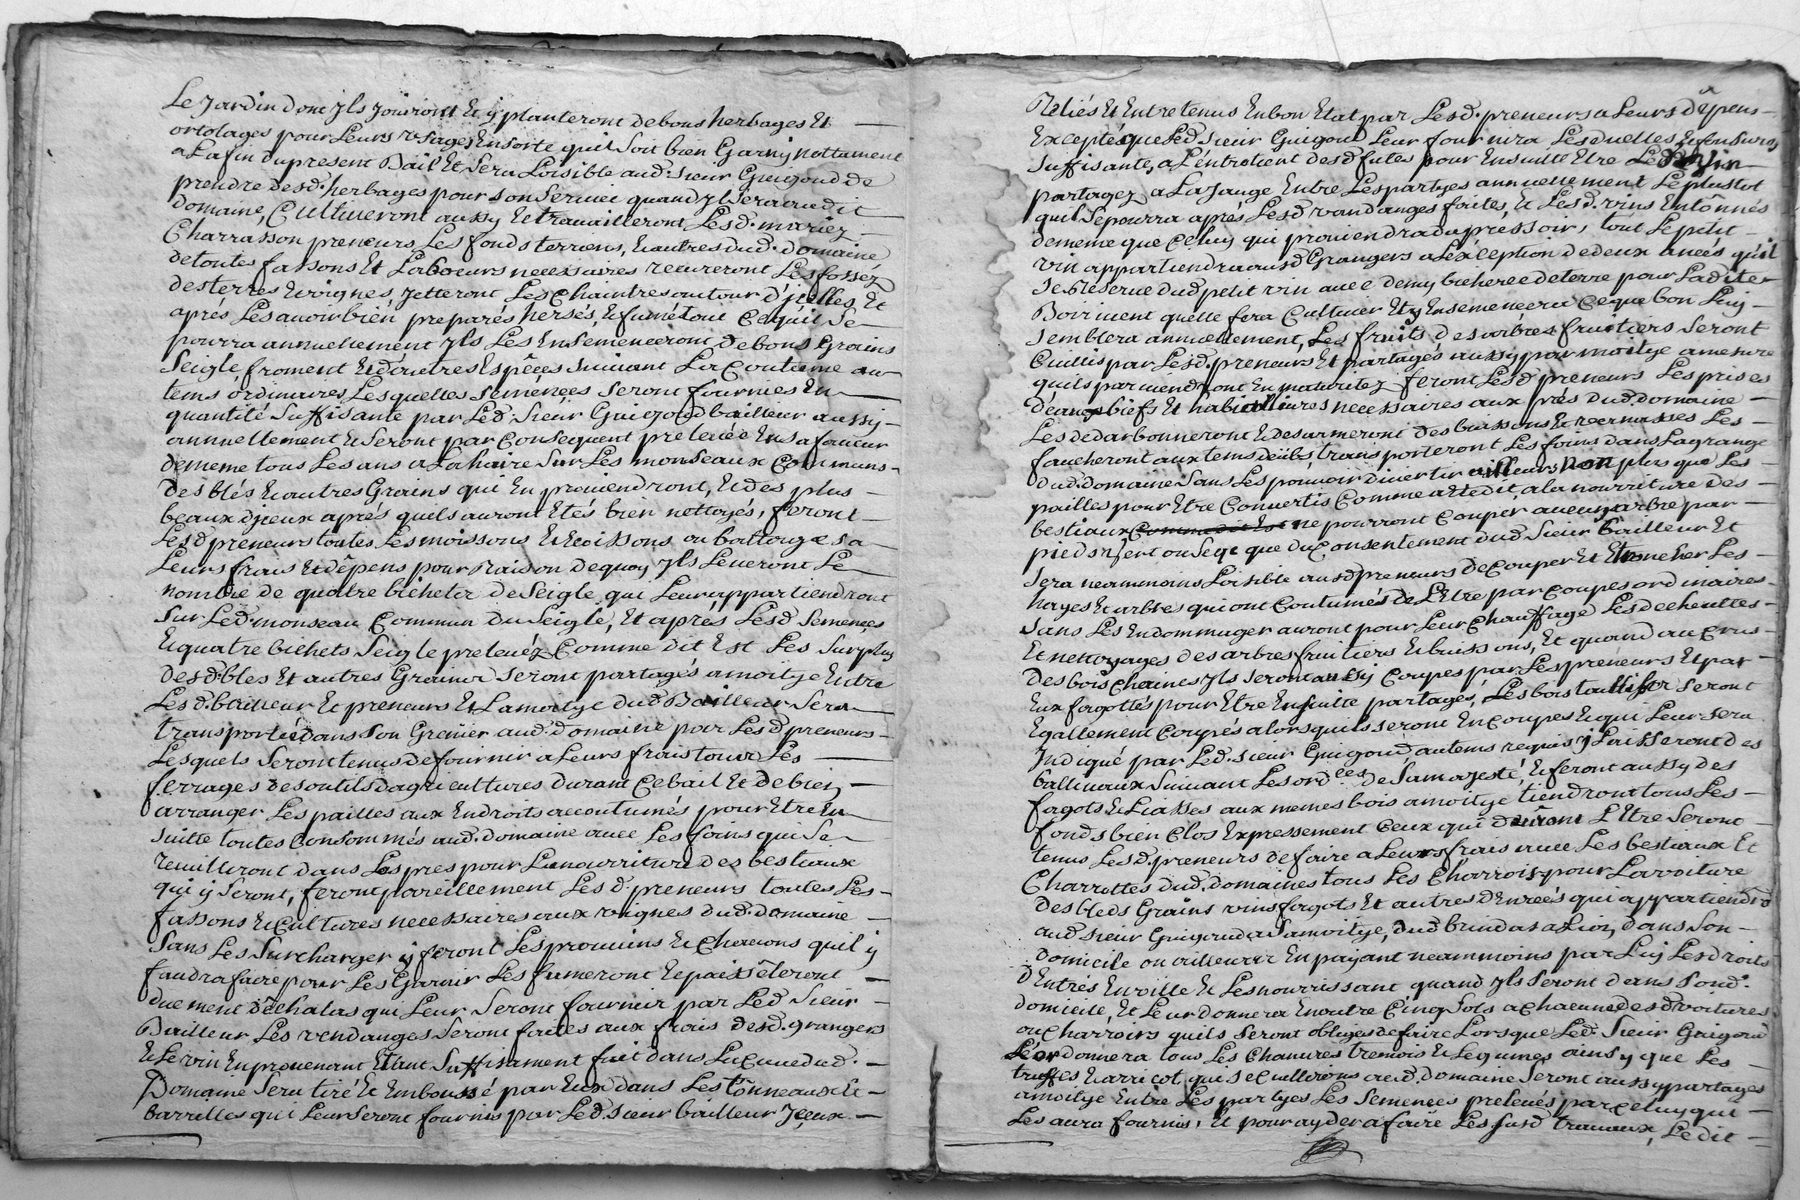 Le Jardin dont Jls Jouiront Et y planteront de bons herbages Et
ortolages pour Leurs usages Ensorte quil Soit bien Garny nottament
a La fin du present Bail Et Sera Loisible aud. Sieur Guigoud de
prendre desd. herbages pour Son Service quand Jl Sera aud it
Domaine, Cultiveront aussy Et travailleront Lesd. mariez
Charrasson preneurs Les fonds terriens, Et autres dud. domaine
de toutes fassons Et Laboeurs necessaires recureront Les fossez
des terres Et vignes, Jetteront Les Chaintres autour d'jcelles, Et
aprés Les avoir bien preparés hersés, Et fumé tout Ce quil Se
pourra annuellement Jls Les Ensemenceront de bons Grains
Seigle froment Et d'autres Espêces Suivant La Coutume au
tems ordinaires, Lesquelles Semences Seront fournies En
quantité Suffisante par Led. Sieur Guigoud bailleur aussi
annuellement Et Seront par Consequent prelevée En Sa faveur
de meme tous Les ans a La haire Sur Les monseaux Communs
des blés Et autres Grains qui En proviendront, Et des plus
beaux d'jceux aprés quels auront Etés bien nettoyés, feront
Lesd preneurs toutes Les moissons Et Ecoissons ou battages a
Leurs frais Et dépens pour Raison de quoy Jls Leveront Le
nombre de quatre bichets de Seigle qui Leur appartiendront
Sur Led. monseau Commun du Seigle, Et aprés Lesd Semences
Et quatre bichets Seigle prelevéz Comme dit Est Les Surplus
desd. bles Et autres Grains Seront partagés a moitye Entre
Lesd. bailleur Et preneurs Et La moitye dud Bailleur Sera
transportée dans Son Grenier aud. domaine par Lesd preneurs
Lesquels Seront tenus de fournir a Leurs frais tous Les
ferrages des outils d'agricultures durant Ce bail Et de bien
arranger Les pailles aux Endroits accoutumés pour Etre En
Suitte toutes Consommés aud. domaine avec Les foins qui Se
recuilleront dans Les prés pour La nourriture des bestiaux
qui y Seront, feront pareillement Lesd. preneurs toutes Les
fassons Et Cultures necessaires aux vignes dud. domaine
Sans Les Surcharger y feront Les provins Et Chavons quil y
faudra faire pour Les Garnir Les fumeront Et paissêleront
duement d'Echalas qui Leur Seront fournir par Led Sieur
Bailleur Les vendanges Seront faites aux frais desd. grangers
Et Le vin En provenant Etant Suffisament fait dans La Cuve dud.
Domaine Sera tiré Et Emboussé par Eux dans Les tonneaux Et
barrilles qui Leur Seront fournis par Led. Sieur bailleur Jceux
Reliés Et Entretenus En bon Etat par Lesd. preneurs a Leurs dêpens
Excepté que Led Sieur Guigoud Leur fournira Les Et
Suffisante, a L'entretient desd futes pour Ensuitte Etre Led vin
partagez a La Jauge Entre Les partyes annuellement Le plustot
quil Se pourra aprés Lesd vandanges faites, Et Lesd. vins Entônnés
de meme que Celuy qui proviendra du pressoir, tout Le petit
vin appartiendra ausd Grangers a L'éxception de deux quil
Se Reserve dud petit vin avec demy bicherée de terre pour Ladite
quelle fera Cultiver Et y Ensemencera Ce que bon Luy
Semblera annuellement, Les fruits des arbres fruitiers Seront
Cuillis par Lesd. preneurs Et partagés aussy par moitye a mesure
quils parviendront En maturitez feront Lesd preneurs Les prises
d'eau biefs Et necessaires aux prés dud. domaine
Les Et desarmeront des buissons Et Les
faucheront aux tems transporteront Les foins dans La grange
dud. domaine Sans Les pouvoir divertir ailleurs non plus que Les
pailles pour Etre Convertis Comme a Eté dit, a la nourriture des
bestiaux Comme dit Est ne pourront Couper aucun arbre par
pieds vert ou Sec que du Consentement dud Sieur Bailleur Et
Sera neammoins Loisible ausd preneurs de Couper Et Ebrancher Les
hayes Et arbres qui ont Coutumés de L'Etre par Coupes ordinaires
Sans Les Endommager auront pour Leur Chauffage Les
Et nettoyages des arbres fruitiers Et buissons, Et quand au
des bois Chaines Jls Seront aussi Coupes par Les preneurs Et par
Eux fagottés pour Etre Ensuite partages, Les bois taillifs Seront
Egallement Coupés alors quils Seront En Coupes Et qui Leur Sera
Indiqué par Led. Sieur Guigoud au tems requis y Laisseront des
balliveaux Suivant Les ordces de Sa majesté, Et feront aussy des
fagots Et Liasses aux memes bois a moitye tiendront tous Les
fonds bien Clos Expressement Ceux qui d'Etre Seront
tenus Lesd. preneurs de faire a Leurs frais avec Les bestiaux Et
Charrettes dud. domaines tous Les Charrois pour La voiture
des bleds Grains vins fagots Et autres denrées qui appartiendrod
aud Sieur Guigoud a Sa moitye, dud brindas a Lion, dans Son
domicile ou ailleurs En payant neammoins par Luy Les droits
d'Entrés En ville Et Les nourrissant quand Jls Seront dans Sond.
domicile, Et Leur donnera En outre Cinq Sols a Chacune desd voitures
ou Charroirs quils Seront obligés de faire Lorsque Led Sieur Guigoud
L'ordonnera tous Les Chanvres tremois Et Legumes ainsy que Les
truffes haricot qui Se Cuilliront aud. domaine Seront aussy partages
a moitye Entre Les partyes Les Semences prelevés par Celuy qui
Les aura fournis, Et pour ayder a faire Les susd travaux, Ledit